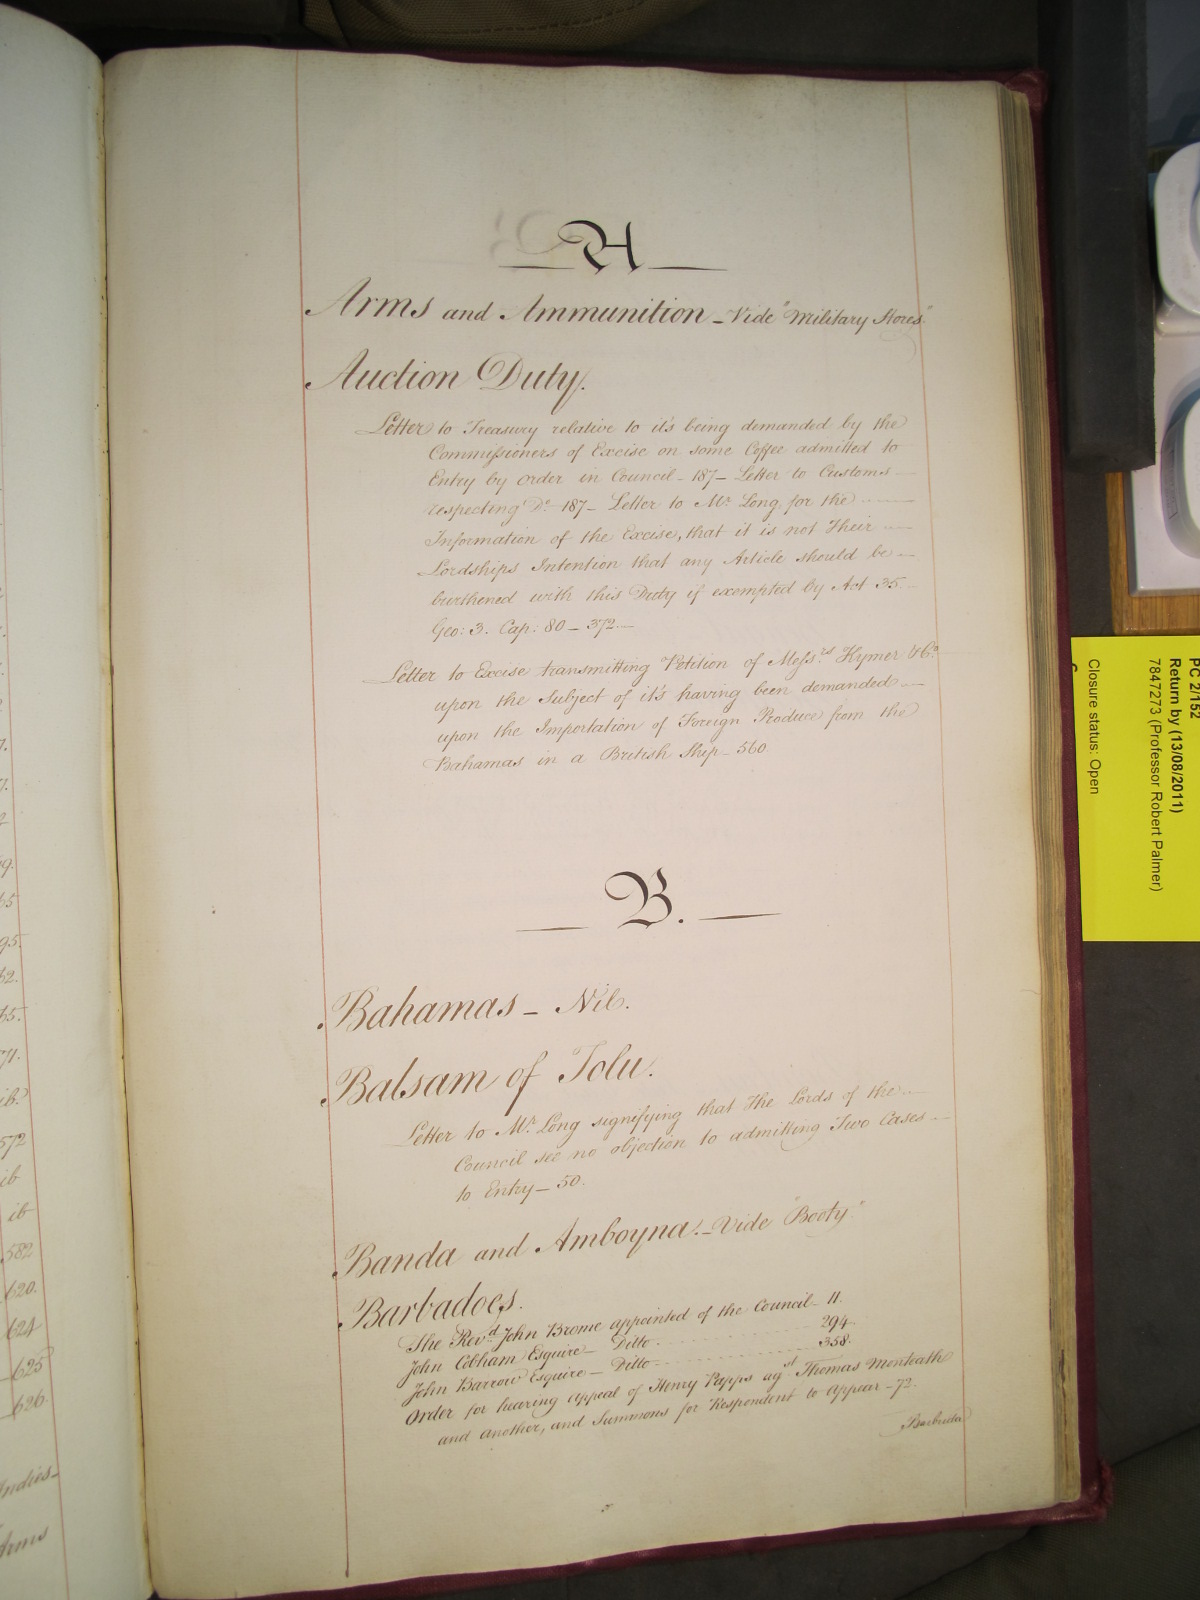 A
Arms and Ammunition - Vide "Military Stores"
Auction Duty.
Letter to Treasury relative to it's being demanded by the
Commissioners of Excise on some Coffee admitted to
Entry by Order in Council - 187 - Letter to Customs
respecting Do. 187 - Letter to Mr. Long for the
Information of the Excise, that it is not Their
Lordships Intention that any Article should be
burthened with this Duty if exempted by Act 35
Geo: 3. Cap: 80 - 372.
Letter to Excise transmitting Petition of Messrs. Hymer & Co.
upon the Subject of it's having been demanded
upon the Importation of Foreign Produce from the
Bahamas in a British Ship - 560.
B.
Bahamas - Nil.
Balsam of Tolu.
Letter to Mr. Long signifying that the Lords of the
Council see no objection to admitting Two Cases
to Entry - 50.
Banda and Amboyna. - Vide "Booty."
Barbadoes.
The Revd. John Brome appointed of the Council - 11.
John Cobham Esquire - Ditto 294.
John Barrow Esquire - Ditto 358.
Order for hearing appeal of Henry Papps agst. Thomas Monteath
and another, and Summons for Respondent to appear - 72.
Barbuda
7.
7.
2
9.
65
95.
62.
65.
71.
ib.
572
ib
ib
582
620.
624
625
626.
Indies -
Arms
PC 2/152
Return by (13/08/2011)
7847273 (Professor Robert Palmer)
Closure status: Open